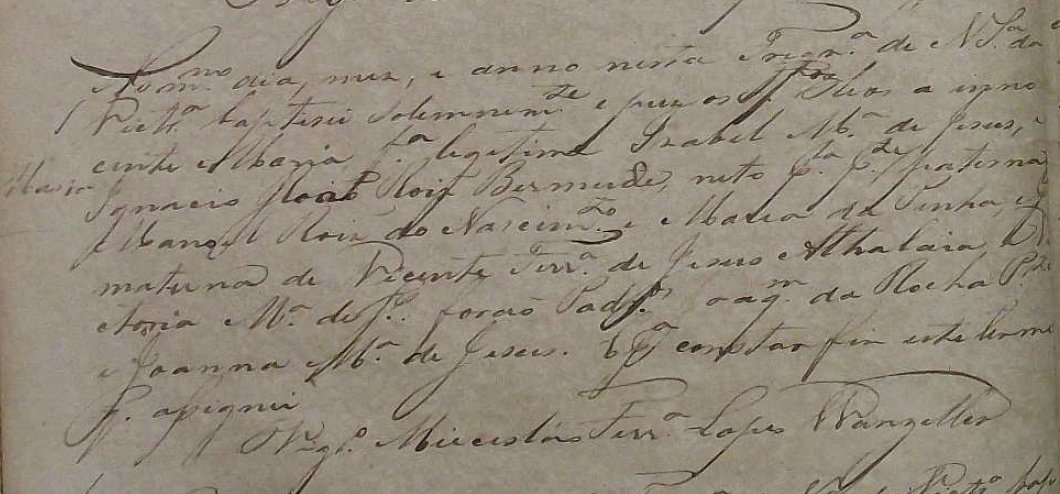 No m.mo dia, mez, e anno nesta Freg.a de N S.a da
Vict.a baptisei solemnem.te e puz os S.tos Oleos a inno
cente Maria f.a legitima Izabel M.a de Jesus, e
Maria
Ignacio Roiz Bermude, neto p.la p.te paterna
Manoel Roiz do Nascim.to e Maria da Penha, e
materna de Vicente Ferr.a de Jesus Athalaia, e Vi
ctoria M.a de J. forão Pad. oaq.m da Rocha P.
e Joanna M.a de Jesus. E p.a constar fiz este termo
q. assignei
Vig.o Miecesláo Ferr.a Lopes Wanzeller